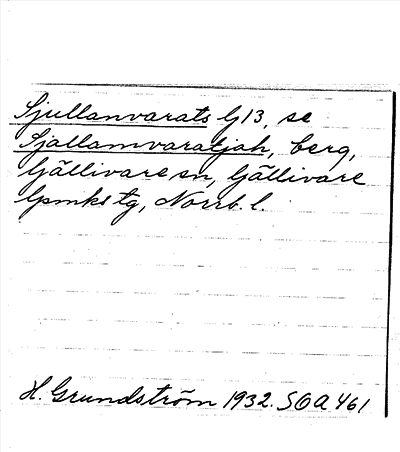 Sjullanvarats Gj13, se
Sjallamvaratjah, berg,
Gällivare sn, Gällivare
lpmks tg, Norrb. l.
H. Grundström 1932. SOA 461